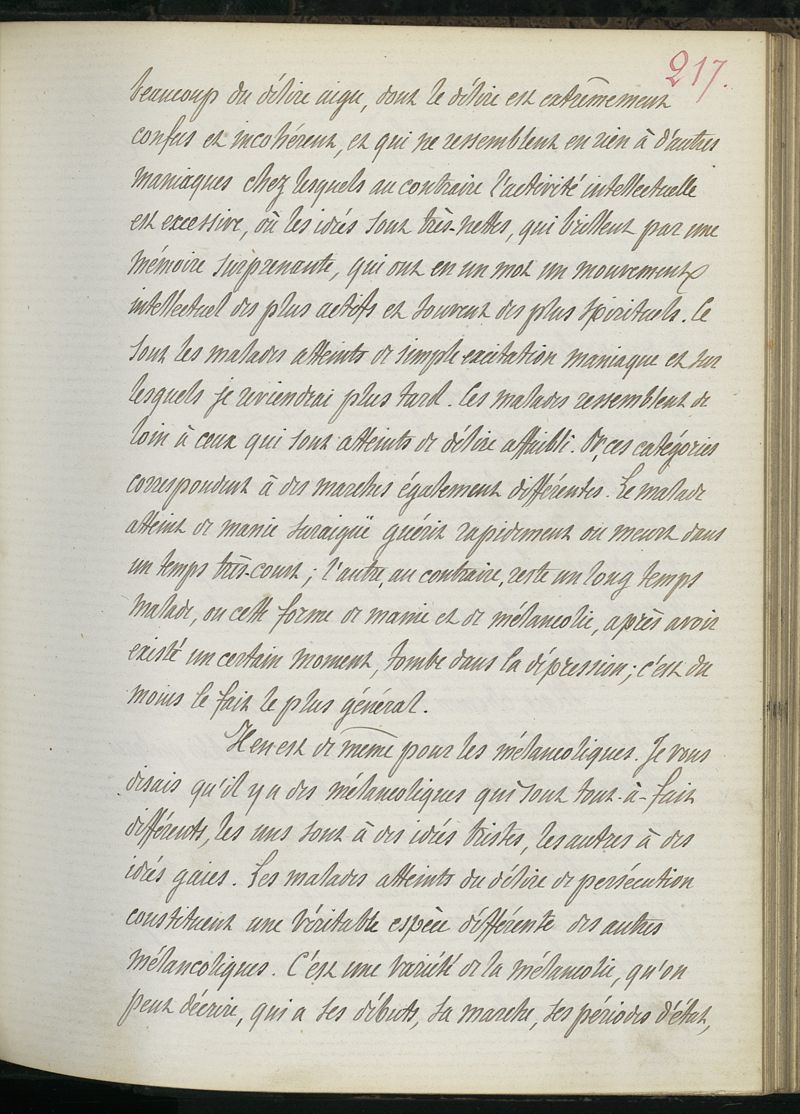 217.
beaucoup du délire aigu, dont le délire est extrêmement
confus et incohérent, et qui ne ressemblent en rien à d'autres
maniaques chez lesquels au contraire l'activité intellectuelle
est excessive, où les idées sont très-nettes, qui brillent par une
mémoire surprenante, qui ont en un mot un mouvement
intellectuel des plus actifs et souvent des plus spirituels. Ce
sont les malades atteints de simple excitation maniaque et sur
lesquels je reviendrai plus tard. Ces malades ressemblent de
loin à ceux qui sont atteints de délire affaibli. Or, ces catégories
correspondent à des marches également différentes. Le malade
atteint de manie suraiguë guérit rapidement ou meurt dans
un temps très-court ; l'autre, au contraire, reste un long temps
malade, ou cette forme de manie et de mélancolie, après avoir
existé un certain moment, tombe dans la dépression ; c'est du
moins le fait le plus général.
Il en est de même pour les mélancoliques. Je vous
disais qu'il y a des mélancoliques qui sont tout-à-fait
différents, les uns sont à des idées tristes, les autres à des
idées gaies. Les malades atteints du délire de persécution
constituent une véritable espèce différente des autres
mélancoliques. C'est une variété de la mélancolie, qu'on
peut décrire, qui a ses débuts, sa marche, ses périodes d'état,